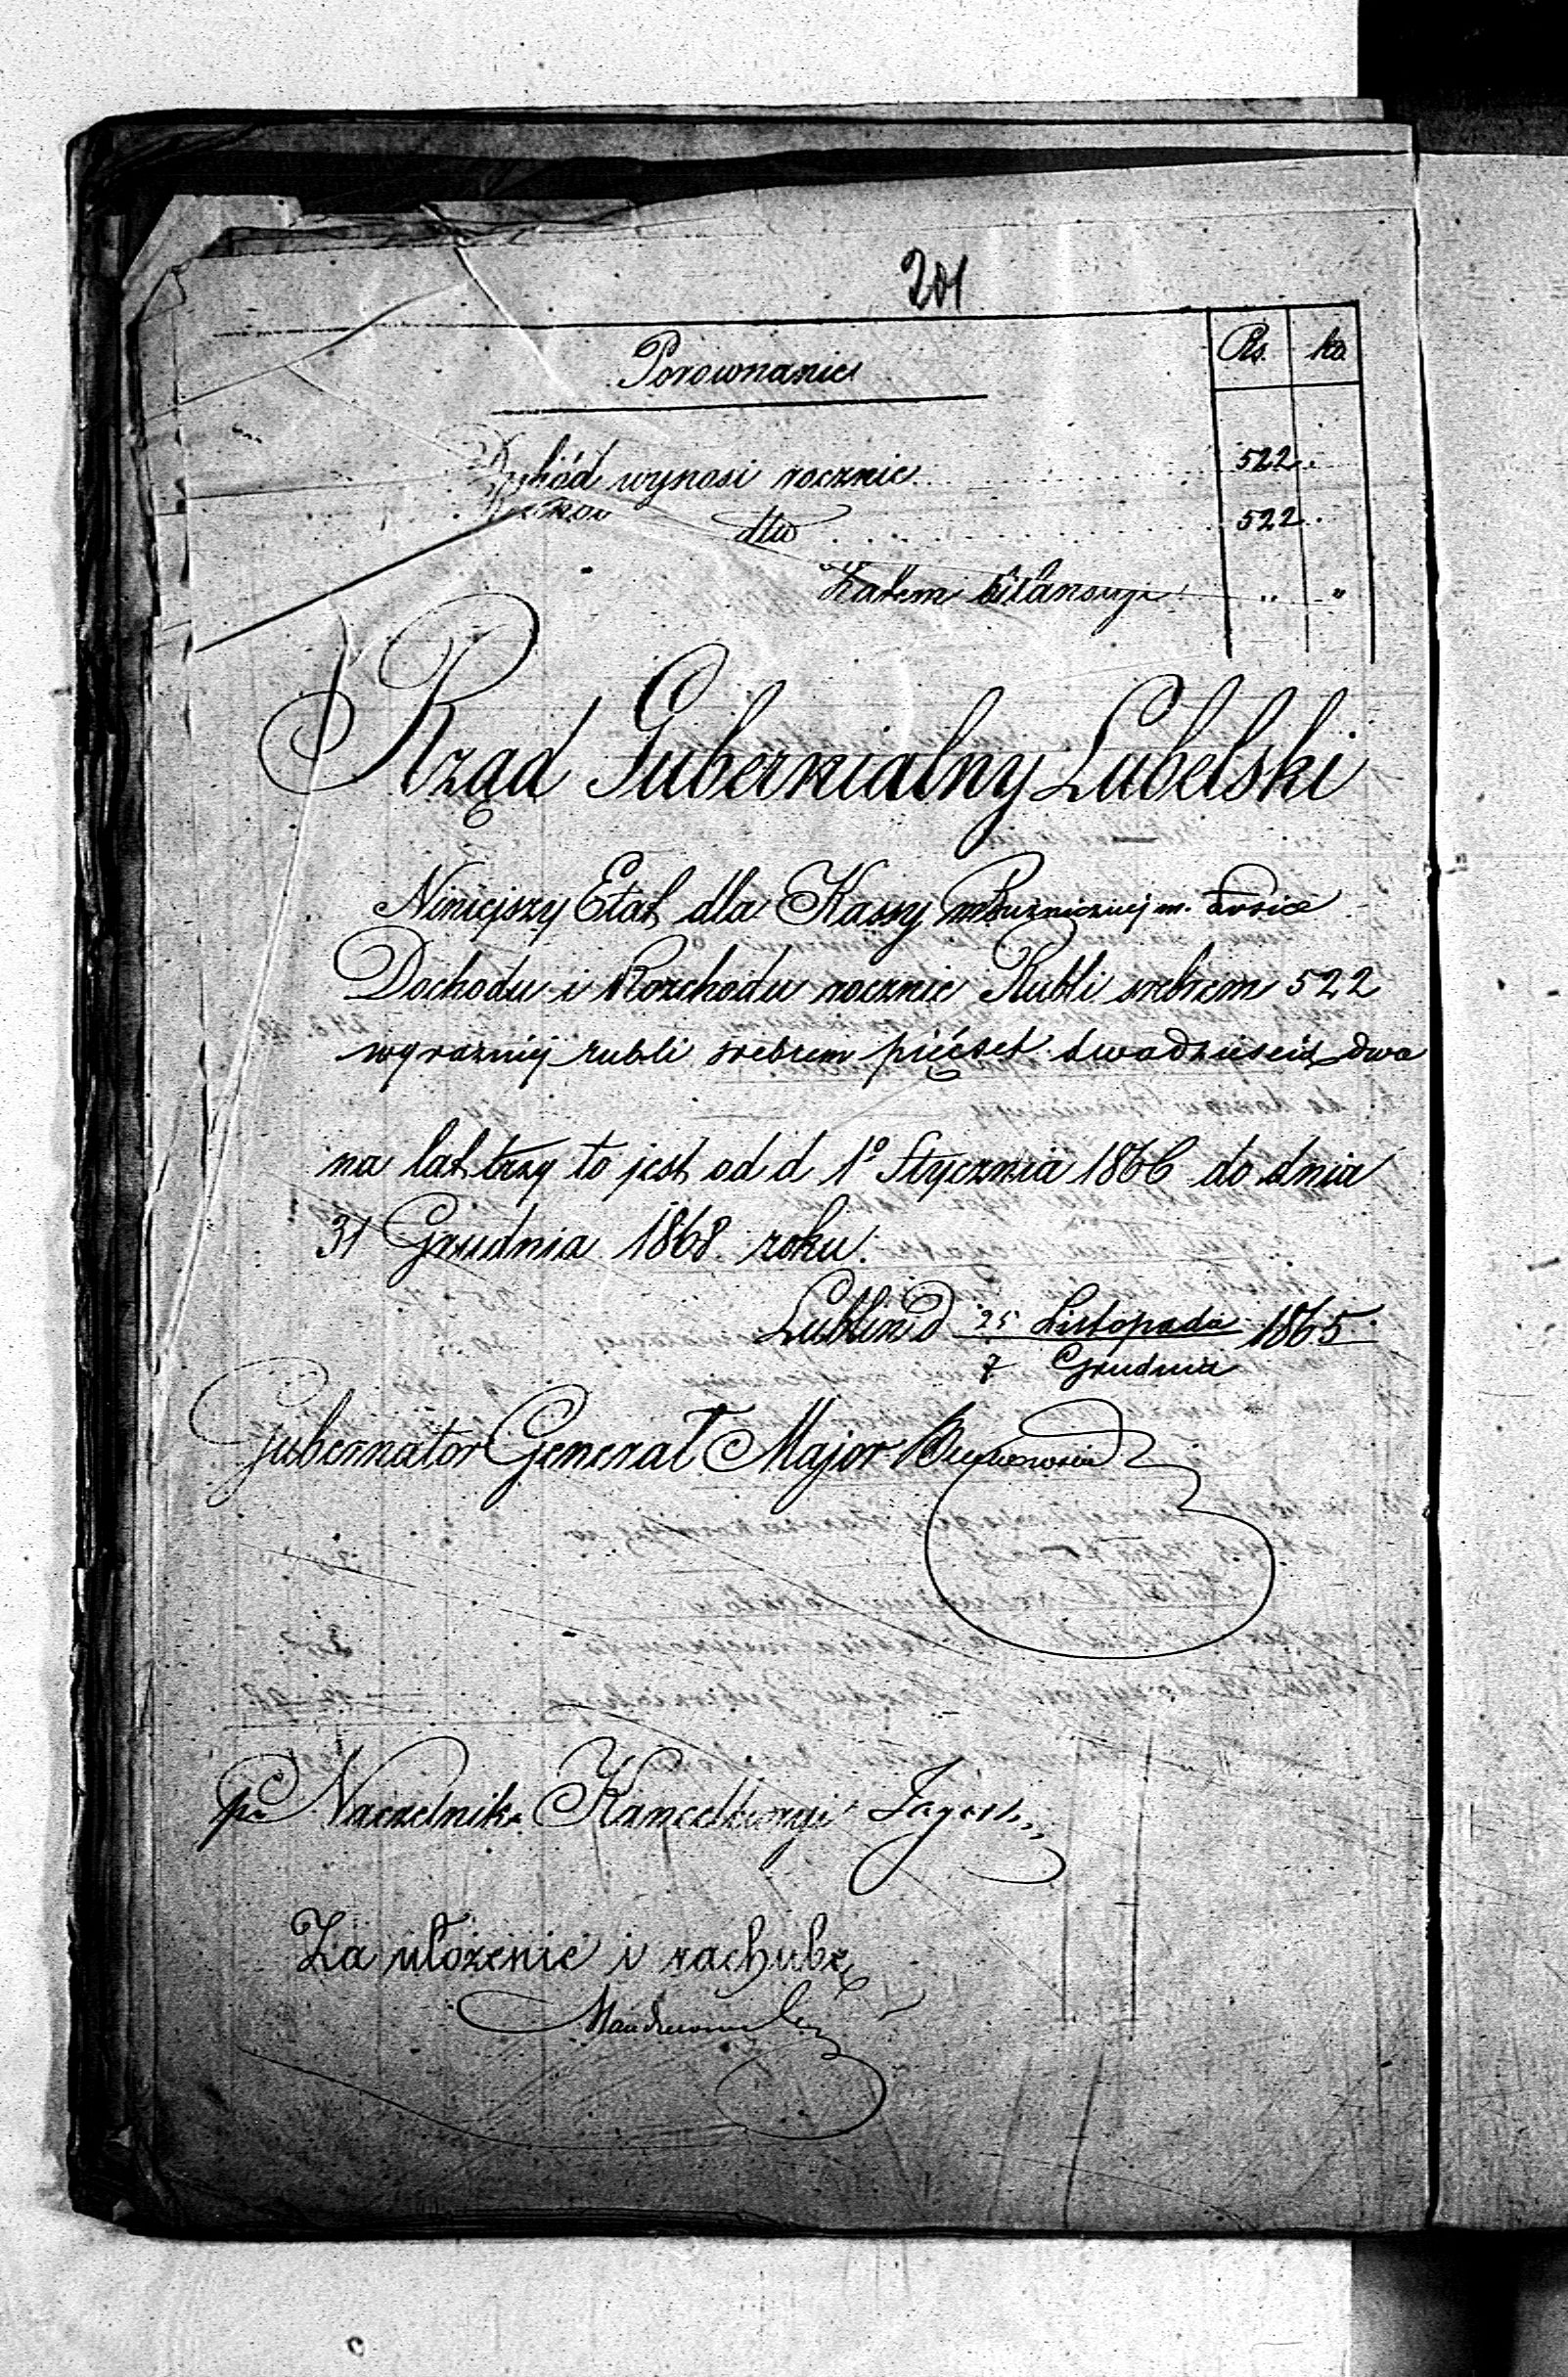 201
Porownanie Rs. ko.
Dochód wynosi rocznie 522
dtto 522
Zatem bilansuje " "
Rząd Gubernialny Lubelski
Niniejszy Etat dla Kassy Bużniczniej m. Łosice
Dochodu i Rozchodu rocznie Rubli srebrem 522
wyrazniej rubli srebrem pięćset dwadzieścia dwa
na lat trzy to jest od d 1º Stycznia 1866 do dnia
31 Grudnia 1868 roku.
Lublin d 25 Listopada 1865
7 Grudnia
Gubernator Generał Major
po Naczelnika Kancellaryi
Za ułożenie i rachubę